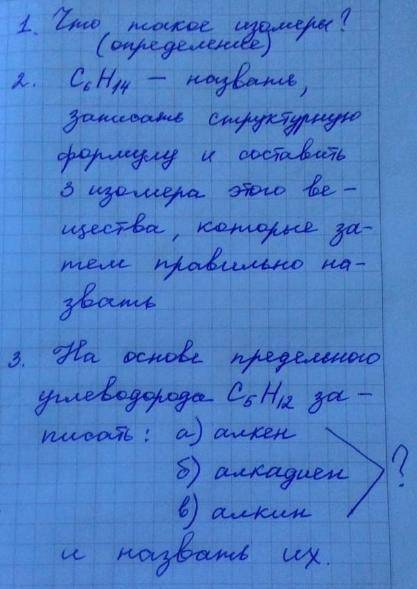 1. Что такое изомеры?
(определение)
2. C₆H₁₄ — назвать,
записать структурную
формулу и составить
3 изомера этого ве-
щества, которые за-
тем правильно на-
звать
3. На основе предельного
углеводорода C₅H₁₂ за-
писать: а) алкен
б) алкадиен
в) алкин
?
и назвать их.